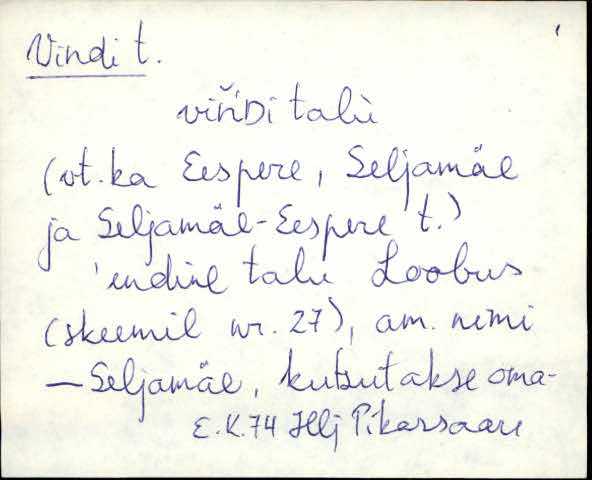 Vindi t.
viń̆Di talù
(vt. ka Eespere, Seljamäe
ja Seljamäe-Eespere t.)
'endine talu Loobus
(skeemil nr. 27), am. nimi
— Seljamäe, kutsutakse oma-
E.K.74 Hlj Pikarsaare